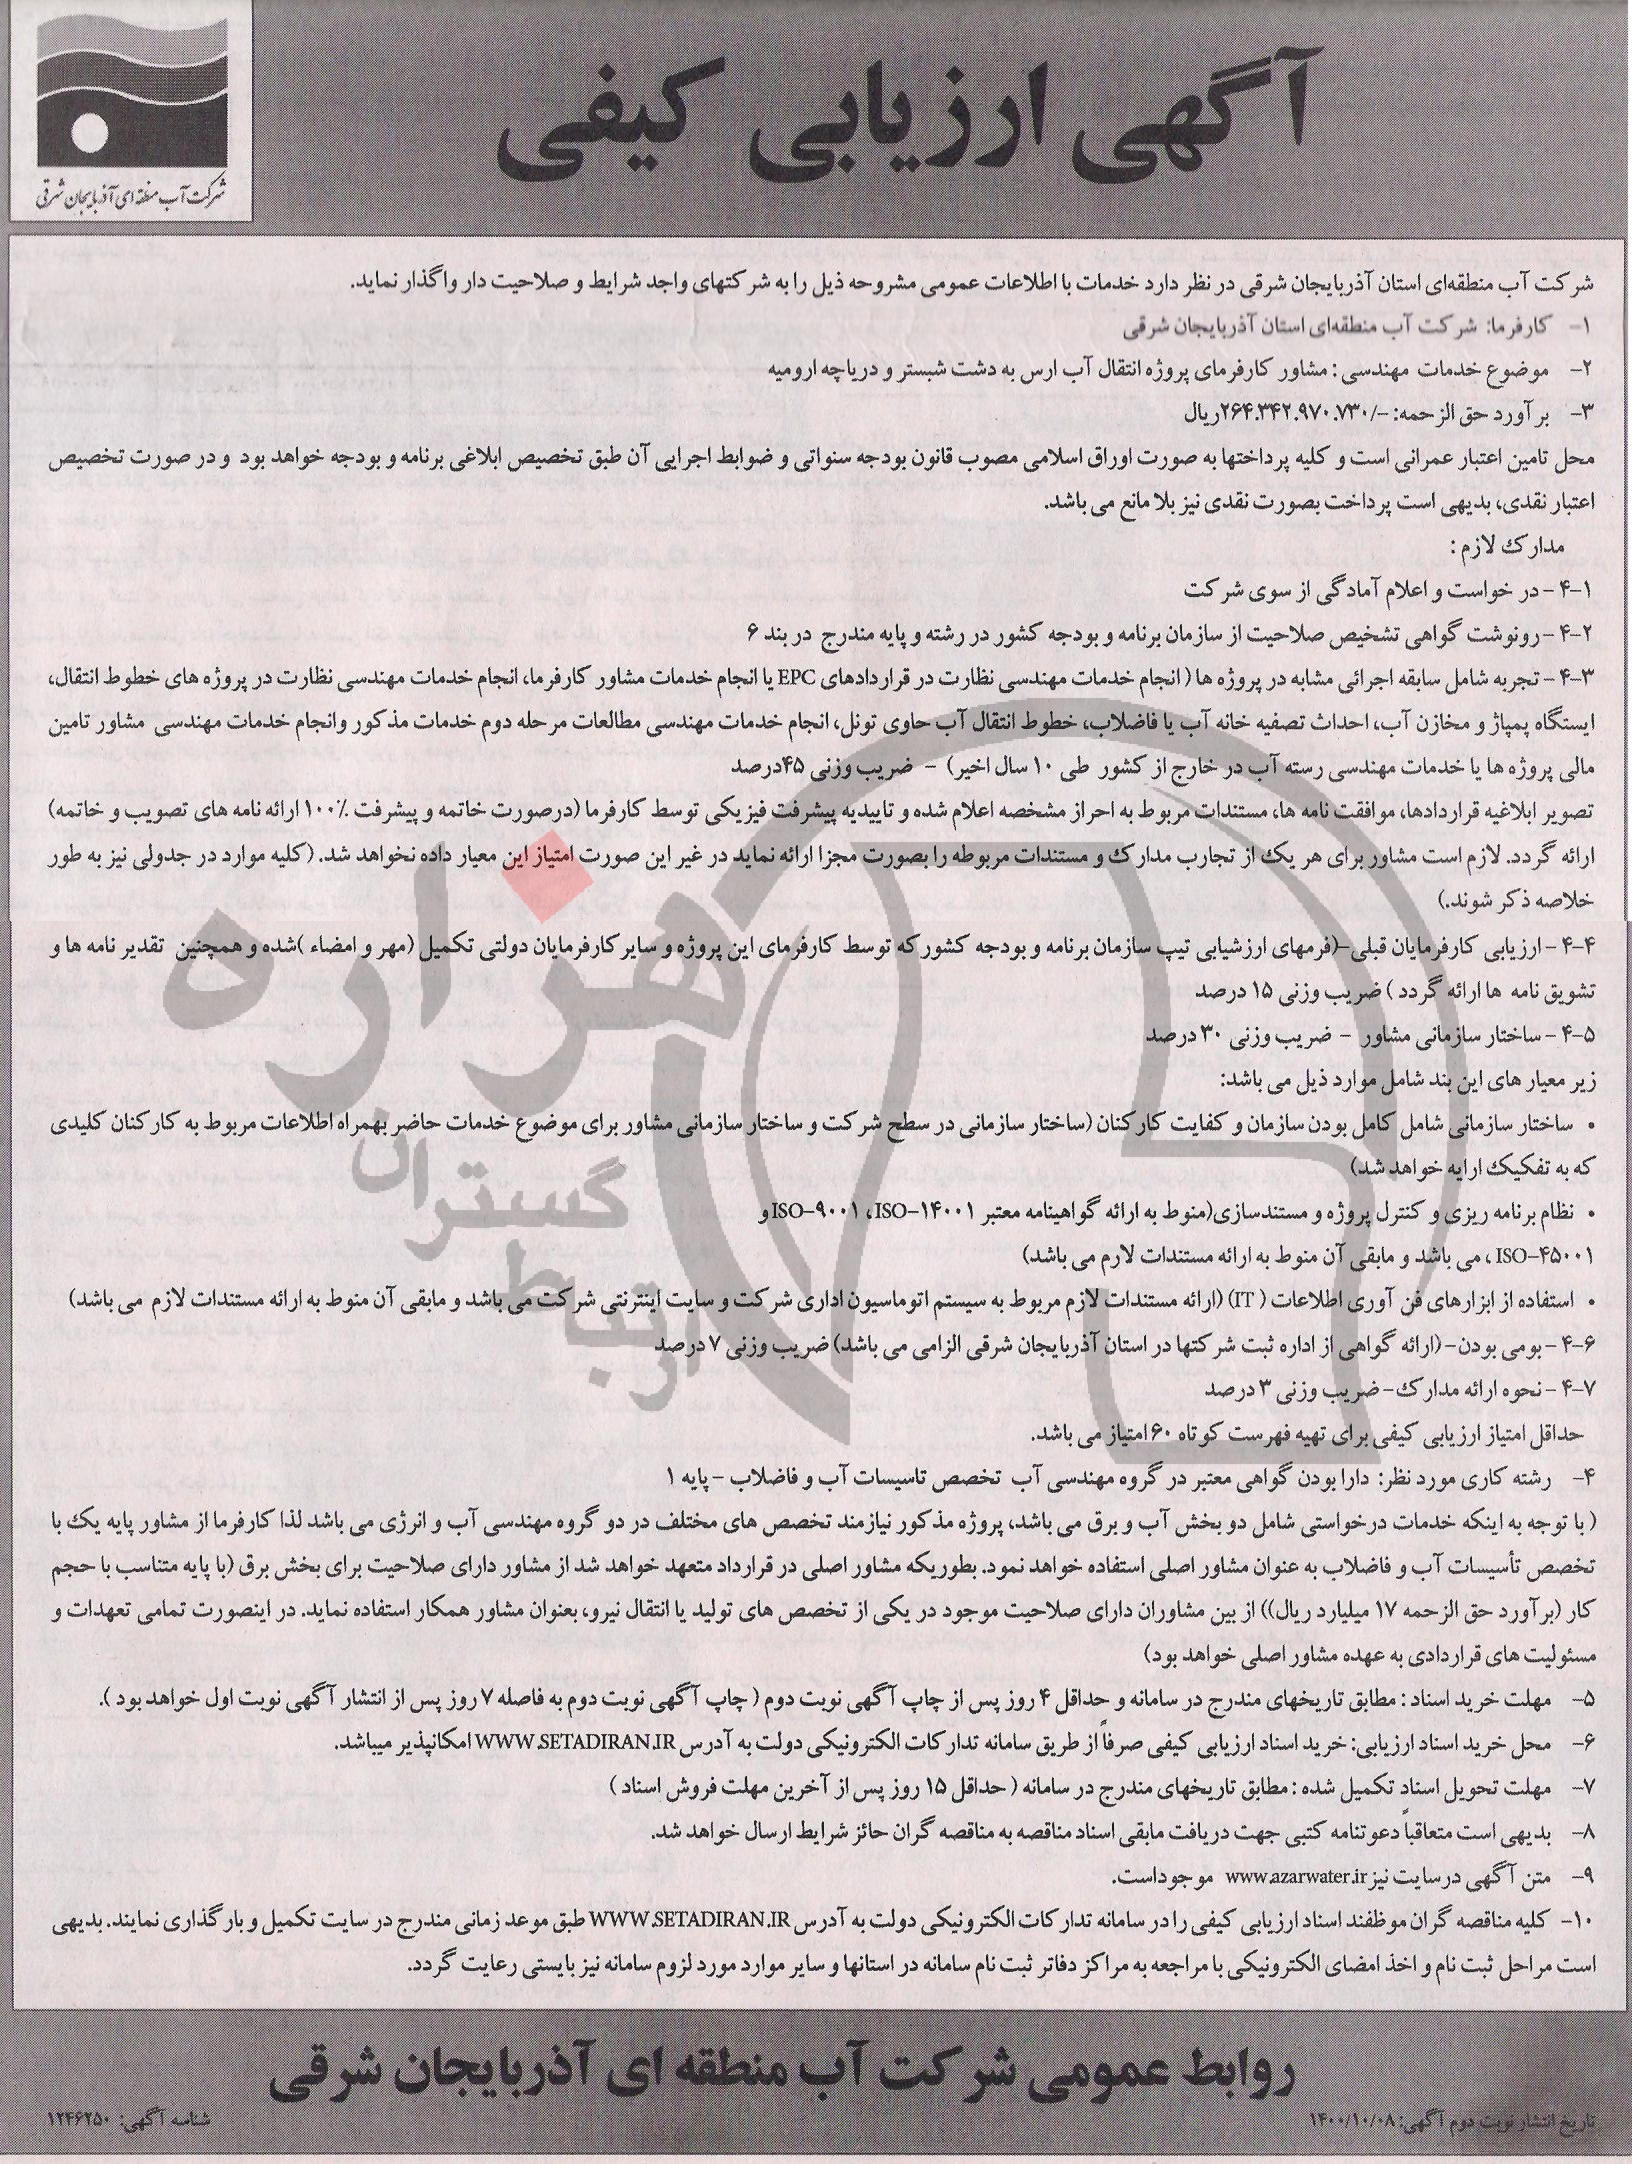 آگهی ارزیابی کیفی
شرکت آب منطقه ای آذربایجان شرقی
شرکت آب منطقه‌ای استان آذربایجان شرقی در نظر دارد خدمات با اطلاعات عمومی مشروحه ذیل را به شرکتهای واجد شرایط و صلاحیت دار واگذار نماید.
۱- کارفرما: شرکت آب منطقه‌ای استان آذربایجان شرقی
۲- موضوع خدمات مهندسی: مشاور کارفرمای پروژه انتقال آب ارس به دشت شبستر و دریاچه ارومیه
۳- برآورد حق الزحمه: -/۲۶۴.۳۴۲.۹۷۰.۷۳۰ریال
محل تامین اعتبار عمرانی است و کلیه پرداختها به صورت اوراق اسلامی مصوب قانون بودجه سنواتی و ضوابط اجرایی آن طبق تخصیص ابلاغی برنامه و بودجه خواهد بود و در صورت تخصیص
اعتبار نقدی، بدیهی است پرداخت بصورت نقدی نیز بلامانع می باشد.
مدارک لازم :
۴-۱ - در خواست و اعلام آمادگی از سوی شرکت
۴-۲ - رونوشت گواهی تشخیص صلاحیت از سازمان برنامه و بودجه کشور در رشته و پایه مندرج در بند ۶
۴-۳ - تجربه شامل سابقه اجرائی مشابه در پروژه ها ( انجام خدمات مهندسی نظارت در قراردادهای EPC یا انجام خدمات مشاور کارفرما، انجام خدمات مهندسی نظارت در پروژه های خطوط انتقال،
ایستگاه پمپاژ و مخازن آب، احداث تصفیه خانه آب یا فاضلاب، خطوط انتقال آب حاوی تونل، انجام خدمات مهندسی مطالعات مرحله دوم خدمات مذکور وانجام خدمات مهندسی مشاور تامین
مالی پروژه ها یا خدمات مهندسی رسته آب در خارج از کشور طی ۱۰ سال اخیر) - ضریب وزنی ۴۵درصد
تصویر ابلاغیه قراردادها، موافقت نامه ها، مستندات مربوط به احراز مشخصه اعلام شده و تاییدیه پیشرفت فیزیکی توسط کارفرما (درصورت خاتمه و پیشرفت ۱۰۰٪ ارائه نامه های تصویب و خاتمه)
ارائه گردد. لازم است مشاور برای هر یک از تجارب مدارک و مستندات مربوطه را بصورت مجزا ارائه نماید در غیر این صورت امتیاز این معیار داده نخواهد شد. (کلیه موارد در جدولی نیز به طور
خلاصه ذکر شوند.)
۴-۴ - ارزیابی کارفرمایان قبلی-(فرمهای ارزشیابی تیپ سازمان برنامه و بودجه کشور که توسط کارفرمای این پروژه و سایر کارفرمایان دولتی تکمیل (مهر و امضاء )شده و همچنین تقدیر نامه ها و
تشویق نامه ها ارائه گردد ) ضریب وزنی ۱۵ درصد
۴-۵ - ساختار سازمانی مشاور - ضریب وزنی ۳۰ درصد
زیر معیار های این بند شامل موارد ذیل می باشد:
• ساختار سازمانی شامل کامل بودن سازمان و کفایت کارکنان (ساختار سازمانی در سطح شرکت و ساختار سازمانی مشاور برای موضوع خدمات حاضر بهمراه اطلاعات مربوط به کارکنان کلیدی
که به تفکیک ارایه خواهد شد)
• نظام برنامه ریزی و کنترل پروژه و مستندسازی(منوط به ارائه گواهینامه معتبر ISO-۱۴۰۰۱ ، ISO-۹۰۰۱ و
ISO-۴۵۰۰۱ ، می باشد و مابقی آن منوط به ارائه مستندات لارم می باشد)
• استفاده از ابزارهای فن آوری اطلاعات ( IT) (ارائه مستندات لازم مربوط به سیستم اتوماسیون اداری شرکت و سایت اینترنتی شرکت می باشد و مابقی آن منوط به ارائه مستندات لازم می باشد)
۴-۶ - بومی بودن-(ارائه گواهی از اداره ثبت شرکتها در استان آذربایجان شرقی الزامی می باشد) ضریب وزنی ۷ درصد
۴-۷ - نحوه ارائه مدارک- ضریب وزنی ۳ درصد
حداقل امتیاز ارزیابی کیفی برای تهیه فهرست کوتاه ۶۰ امتیاز می باشد.
۴- رشته کاری مورد نظر: دارا بودن گواهی معتبر در گروه مهندسی آب تخصص تاسیسات آب و فاضلاب - پایه ۱
( با توجه به اینکه خدمات درخواستی شامل دو بخش آب و برق می باشد، پروژه مذکور نیازمند تخصص های مختلف در دو گروه مهندسی آب و انرژی می باشد لذا کارفرما از مشاور پایه یک با
تخصص تأسیسات آب و فاضلاب به عنوان مشاور اصلی استفاده خواهد نمود. بطوریکه مشاور اصلی در قرارداد متعهد خواهد شد از مشاور دارای صلاحیت برای بخش برق (با پایه متناسب با حجم
کار (برآورد حق الزحمه ۱۷ میلیارد ریال)) از بین مشاوران دارای صلاحیت موجود در یکی از تخصص های تولید یا انتقال نیرو، بعنوان مشاور همکار استفاده نماید. در اینصورت تمامی تعهدات و
مسئولیت های قراردادی به عهده مشاور اصلی خواهد بود)
۵- مهلت خرید اسناد : مطابق تاریخهای مندرج در سامانه و حداقل ۴ روز پس از چاپ آگهی نوبت دوم ( چاپ آگهی نوبت دوم به فاصله ۷ روز پس از انتشار آگهی نوبت اول خواهد بود ).
۶- محل خرید اسناد ارزیابی: خرید اسناد ارزیابی کیفی صرفاً از طریق سامانه تدارکات الکترونیکی دولت به آدرس WWW.SETADIRAN.IR امکانپذیر میباشد.
۷- مهلت تحویل اسناد تکمیل شده : مطابق تاریخهای مندرج در سامانه ( حداقل ۱۵ روز پس از آخرین مهلت فروش اسناد )
۸- بدیهی است متعاقباً دعوتنامه کتبی جهت دریافت مابقی اسناد مناقصه به مناقصه گران حائز شرایط ارسال خواهد شد.
۹- متن آگهی درسایت نیز www.azarwater.ir موجوداست.
۱۰- کلیه مناقصه گران موظفند اسناد ارزیابی کیفی را در سامانه تدارکات الکترونیکی دولت به آدرس WWW.SETADIRAN.IR طبق موعد زمانی مندرج در سایت تکمیل و بارگذاری نمایند. بدیهی
است مراحل ثبت نام و اخذ امضای الکترونیکی با مراجعه به مراکز دفاتر ثبت نام سامانه در استانها و سایر موارد مورد لزوم سامانه نیز بایستی رعایت گردد.
روابط عمومی شرکت آب منطقه ای آذربایجان شرقی
تاریخ انتشار نوبت دوم آگهی: ۱۴۰۰/۱۰/۰۸
شناسه آگهی: ۱۲۴۶۲۵۰
هزاره
گستران
ارتباط